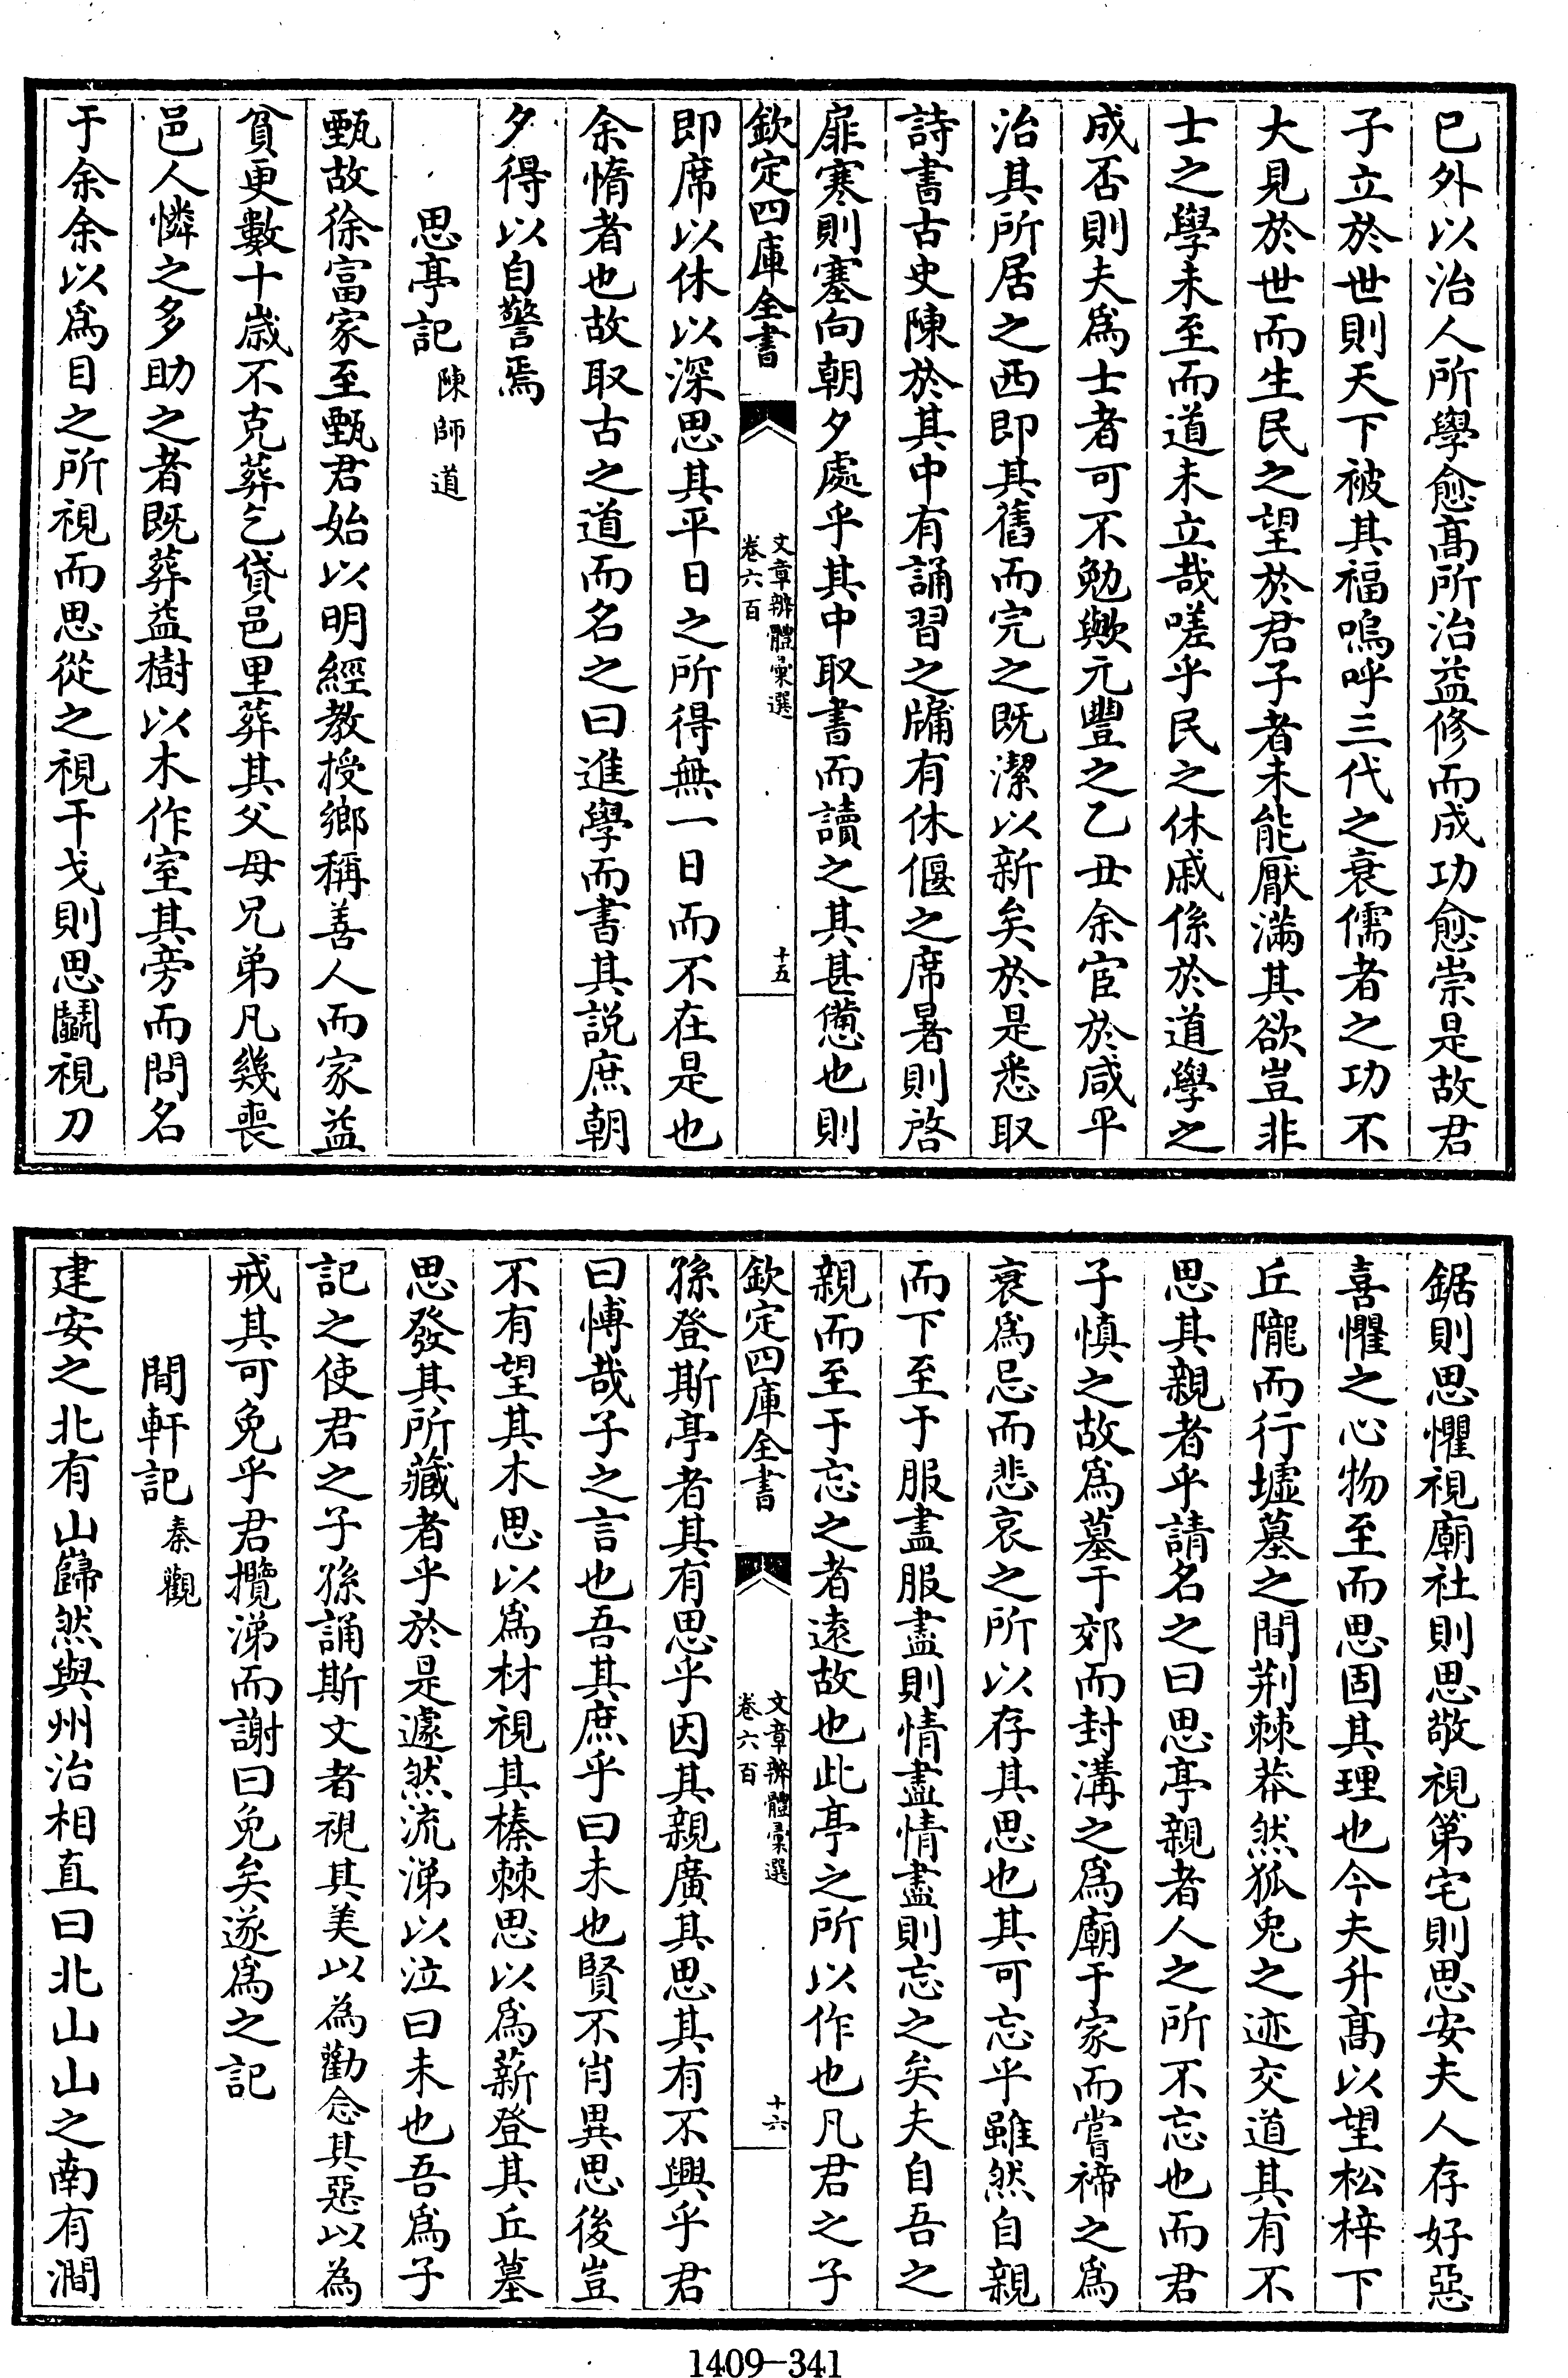 已外以治人所學愈髙所治益修而成功愈崇是故君
子立於世則天下被其福嗚呼三代之衰儒者之功不
大見於世而生民之望於君子者未能厭滿其欲豈非
士之學未至而道未立哉嗟乎民之休戚係於道學之
成否則夫爲士者可不勉歟元豐之乙丑余宦於咸平
治其所居之西即其舊而完之既潔以新矣於是悉取
詩書古史陳於其中有誦習之牖有休偃之席暑則啓
扉寒則塞向朝夕處乎其中取書而讀之其甚憊也則
欽定四庫全書
文章辨體彙選
卷六百
十五
即席以休以深思其平日之所得無一日而不在是也
余惰者也故取古之道而名之曰進學而書其説庶朝
夕得以自警焉
思亭記陳師道
甄故徐富家至甄君始以明經教授鄉稱善人而家益
貧更數十歳不克葬乞貸邑里葬其父母兄弟凡幾喪
邑人憐之多助之者既葬益樹以木作室其旁而問名
于余余以爲目之所視而思從之視干戈則思鬭視刀
鋸則思懼視廟社則思敬視第宅則思安夫人存好惡
喜懼之心物至而思固其理也今夫升髙以望松梓下
丘隴而行墟墓之間荆棘莽然狐兎之迹交道其有不
思其親者乎請名之曰思亭親者人之所不忘也而君
子慎之故爲墓于郊而封溝之爲廟于家而嘗禘之爲
衰爲忌而悲哀之所以存其思也其可忘乎雖然自親
而下至于服盡服盡則情盡情盡則忘之矣夫自吾之
親而至于忘之者遠故也此亭之所以作也凡君之子
欽定四庫全書
文章辨體彙選
卷六百
十六
孫登斯亭者其有思乎因其親廣其思其有不興乎君
曰博哉子之言也吾其庶乎曰未也賢不肖異思後豈
不有望其木思以爲材視其榛棘思以爲薪登其丘墓
思發其所藏者乎於是遽然流涕以泣曰未也吾爲子
記之使君之子孫誦斯文者視其美以為勸念其惡以為
戒其可免乎君攬涕而謝曰免矣遂爲之記
閒軒記秦觀
建安之北有山巋然與州治相直曰北山山之南有澗
1409-341